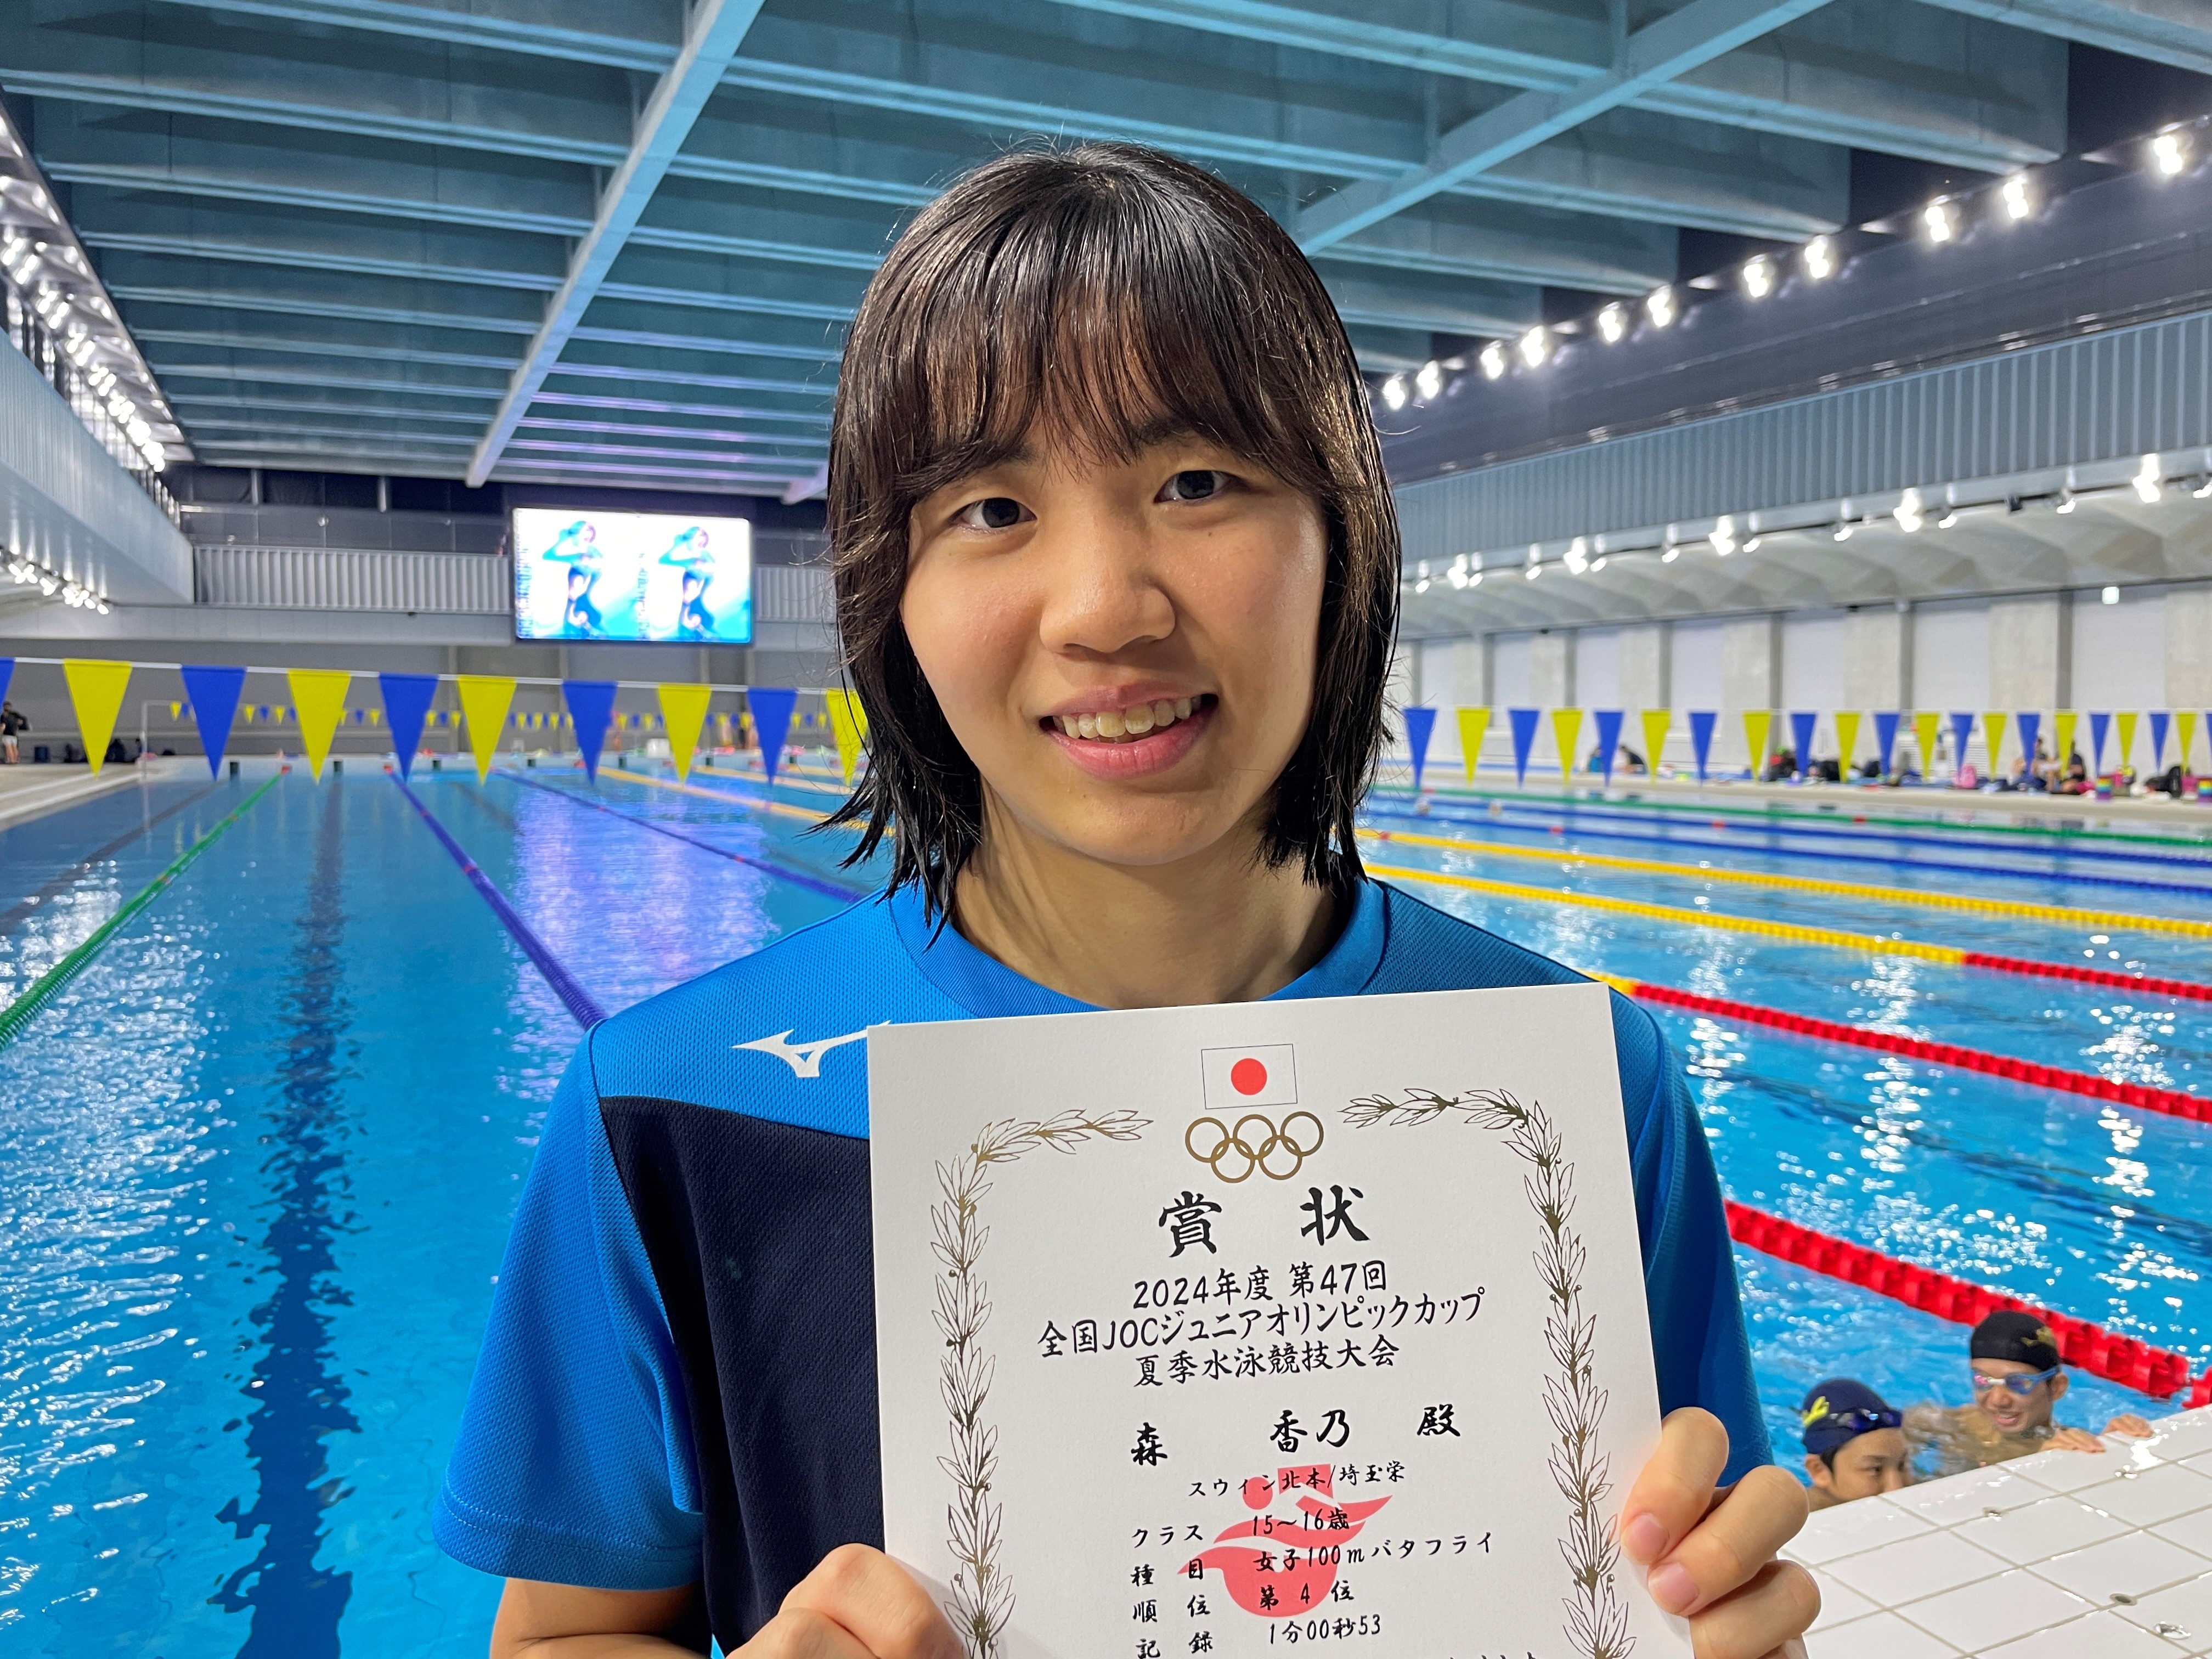 賞 状
2024年度 第47回
全国JOCジュニアオリンピックカップ
夏季水泳競技大会
森 香乃 殿
スウィン北本/埼玉栄
クラス 15～16歳
種目 女子100mバタフライ
順位 第 4 位
記録 1分00秒53